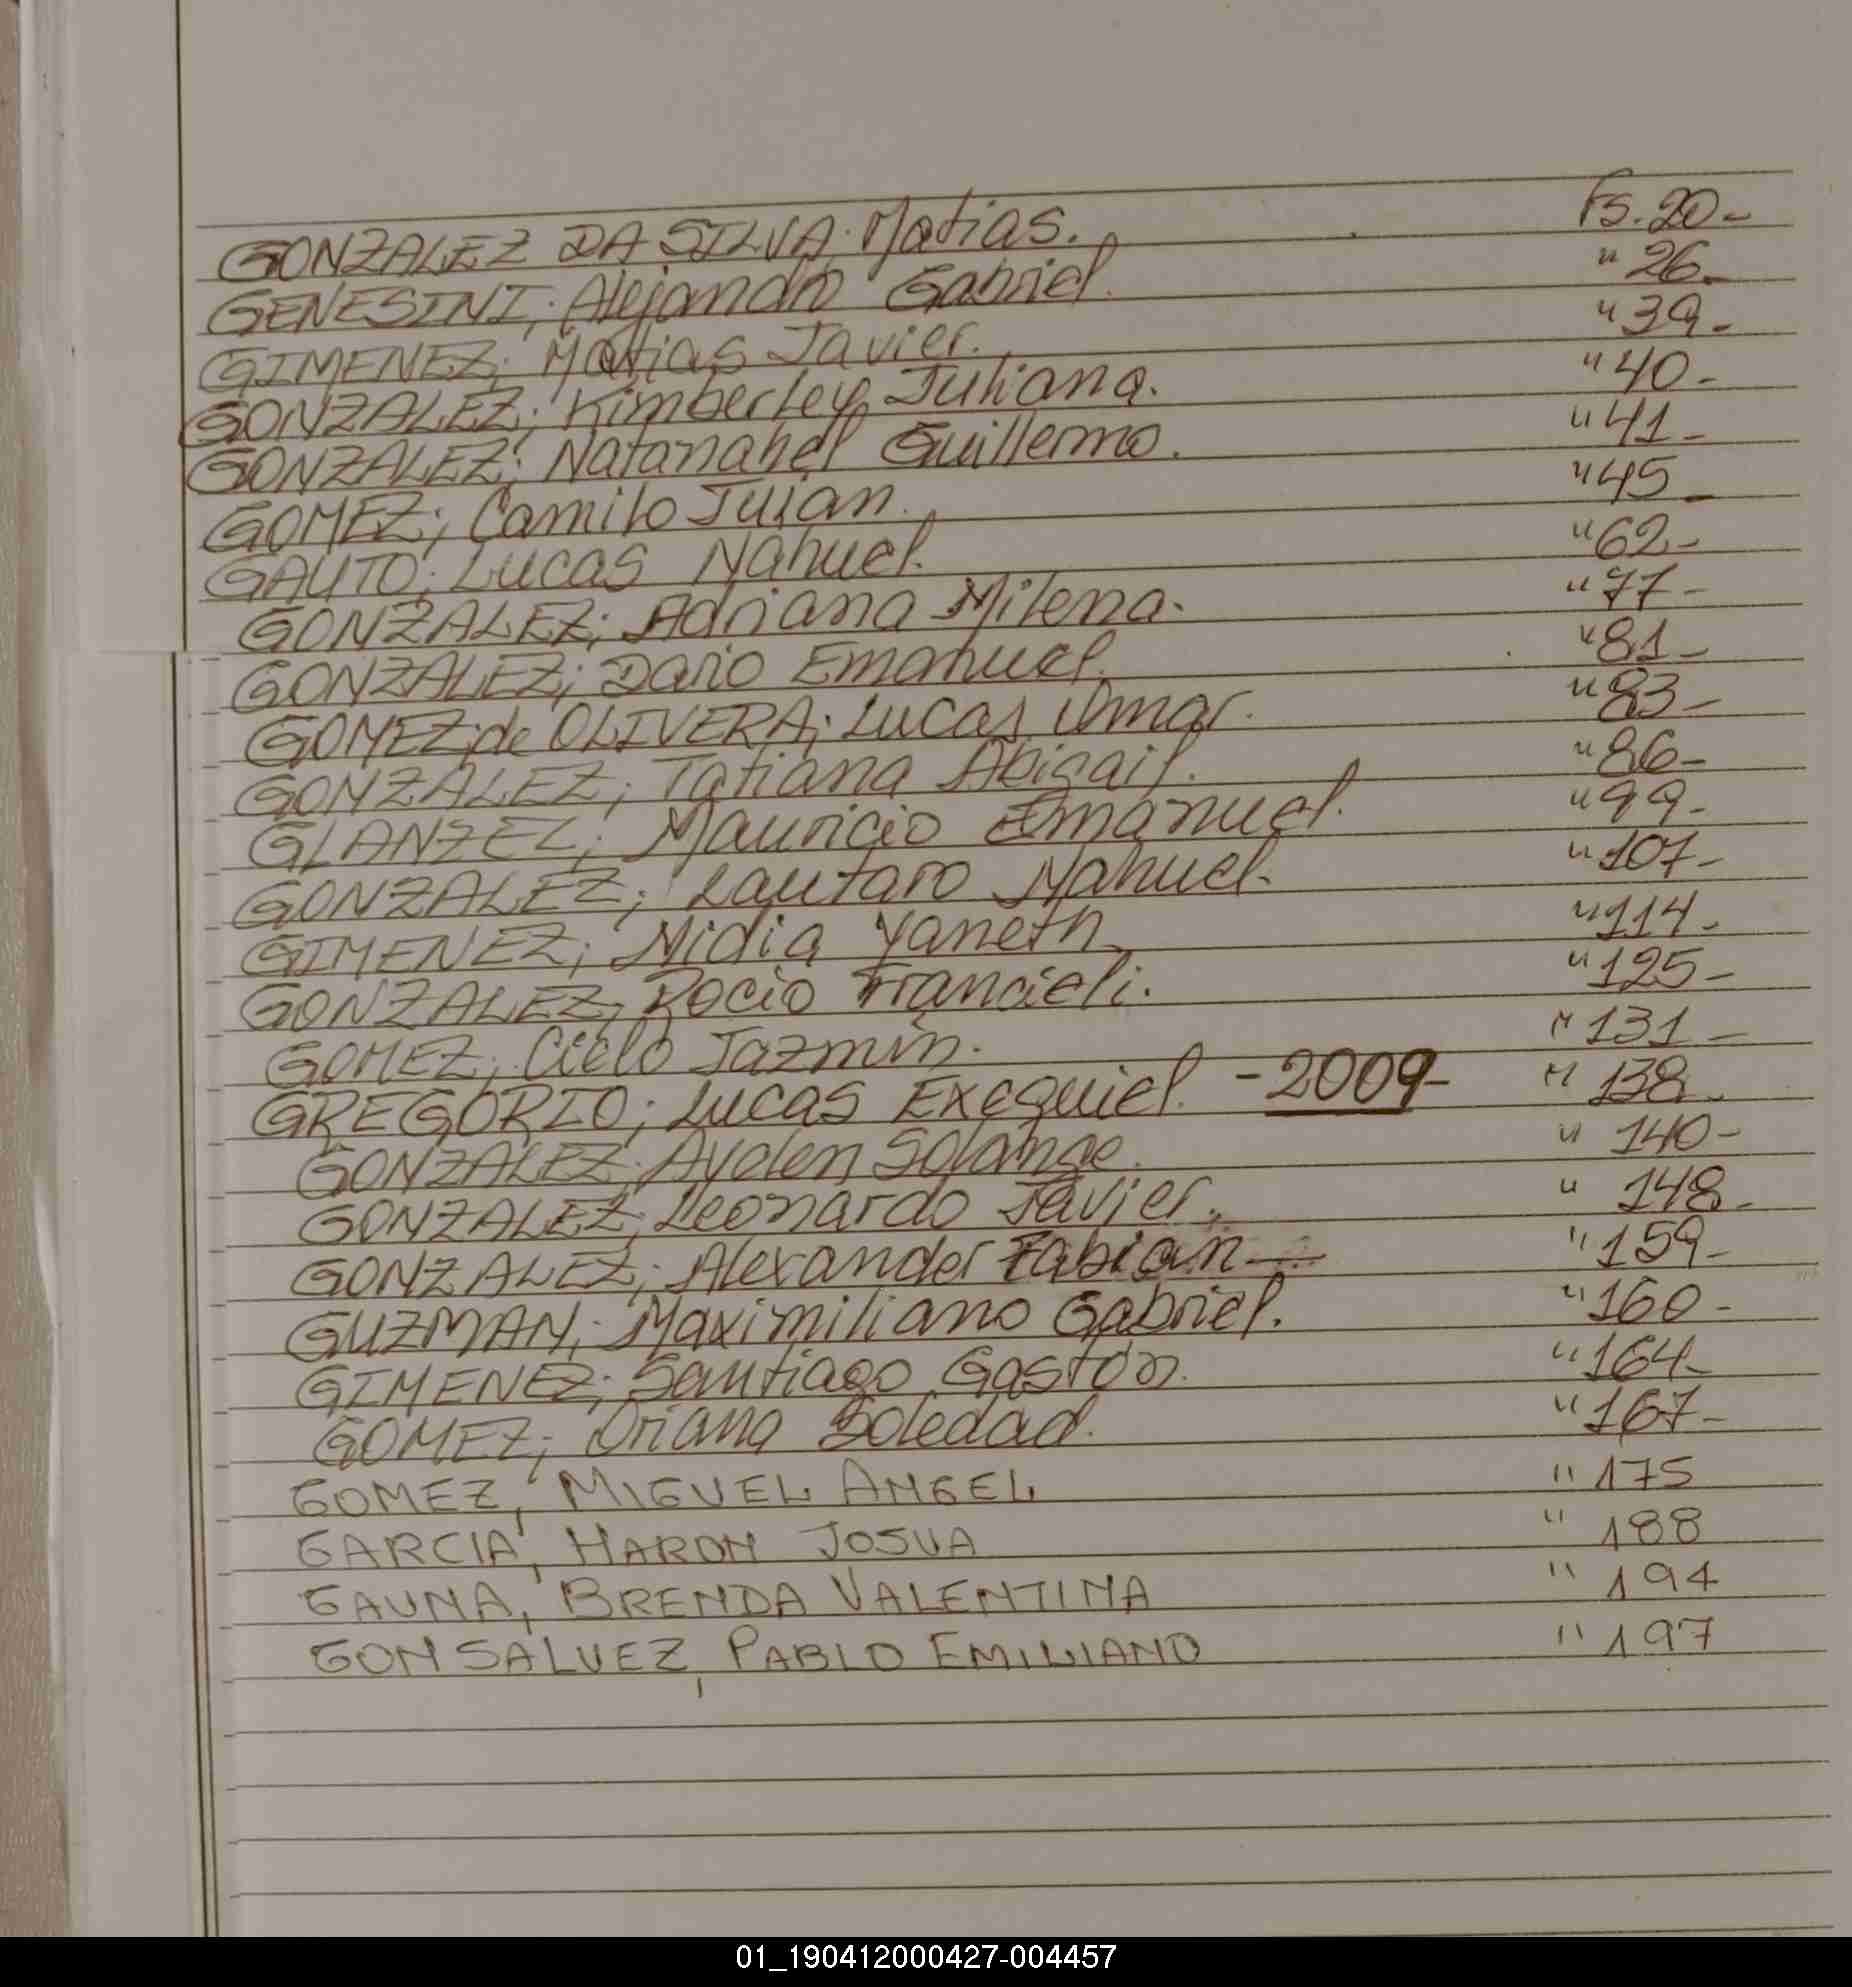 GONZALEZ DA SILVA; Matias. Fs. 20-
GENESINI; Alejandro Gabriel. " 26-
GIMENEZ; Matias Javier. " 39-
GONZALEZ; Kimberley Juliana. " 40-
GONZALEZ; Natanahel Guillermo. " 41-
GOMEZ; Camilo Julian. " 45-
GAUTO; Lucas Nahuel. " 62-
GONZALEZ; Adriana Milena. " 77-
GONZALEZ; Dario Emanuel. " 81-
GOMEZ; de OLIVERA; Lucas Omar. " 83-
GONZALEZ; Tatiana Abigail. " 86-
GLANZEL; Mauricio Emanuel. " 99-
GONZALEZ; Lautaro Nahuel. " 107-
GIMENEZ; Nidia Yaneth. " 114-
GONZALEZ; Rocio Francieli. " 125-
GOMEZ; Cielo Jazmín. " 131-
GREGORIO; Lucas Exequiel. -2009- " 138-
GONZALEZ; Ayelen Solange. " 140-
GONZALEZ; Leonardo Javier. " 148-
GONZALEZ; Alexander Fabian- " 159-
GUZMAN; Maximiliano Gabriel. " 160-
GIMENEZ; Santiago Gastón. " 164-
GOMEZ; Oriana Soledad. " 167-
GOMEZ, MIGUEL ANGEL " 175
GARCIA, HARON JOSUA " 188
GAUNA, BRENDA VALENTINA " 194
GONSALVEZ, PABLO EMILIANO " 197
01_190412000427-004457